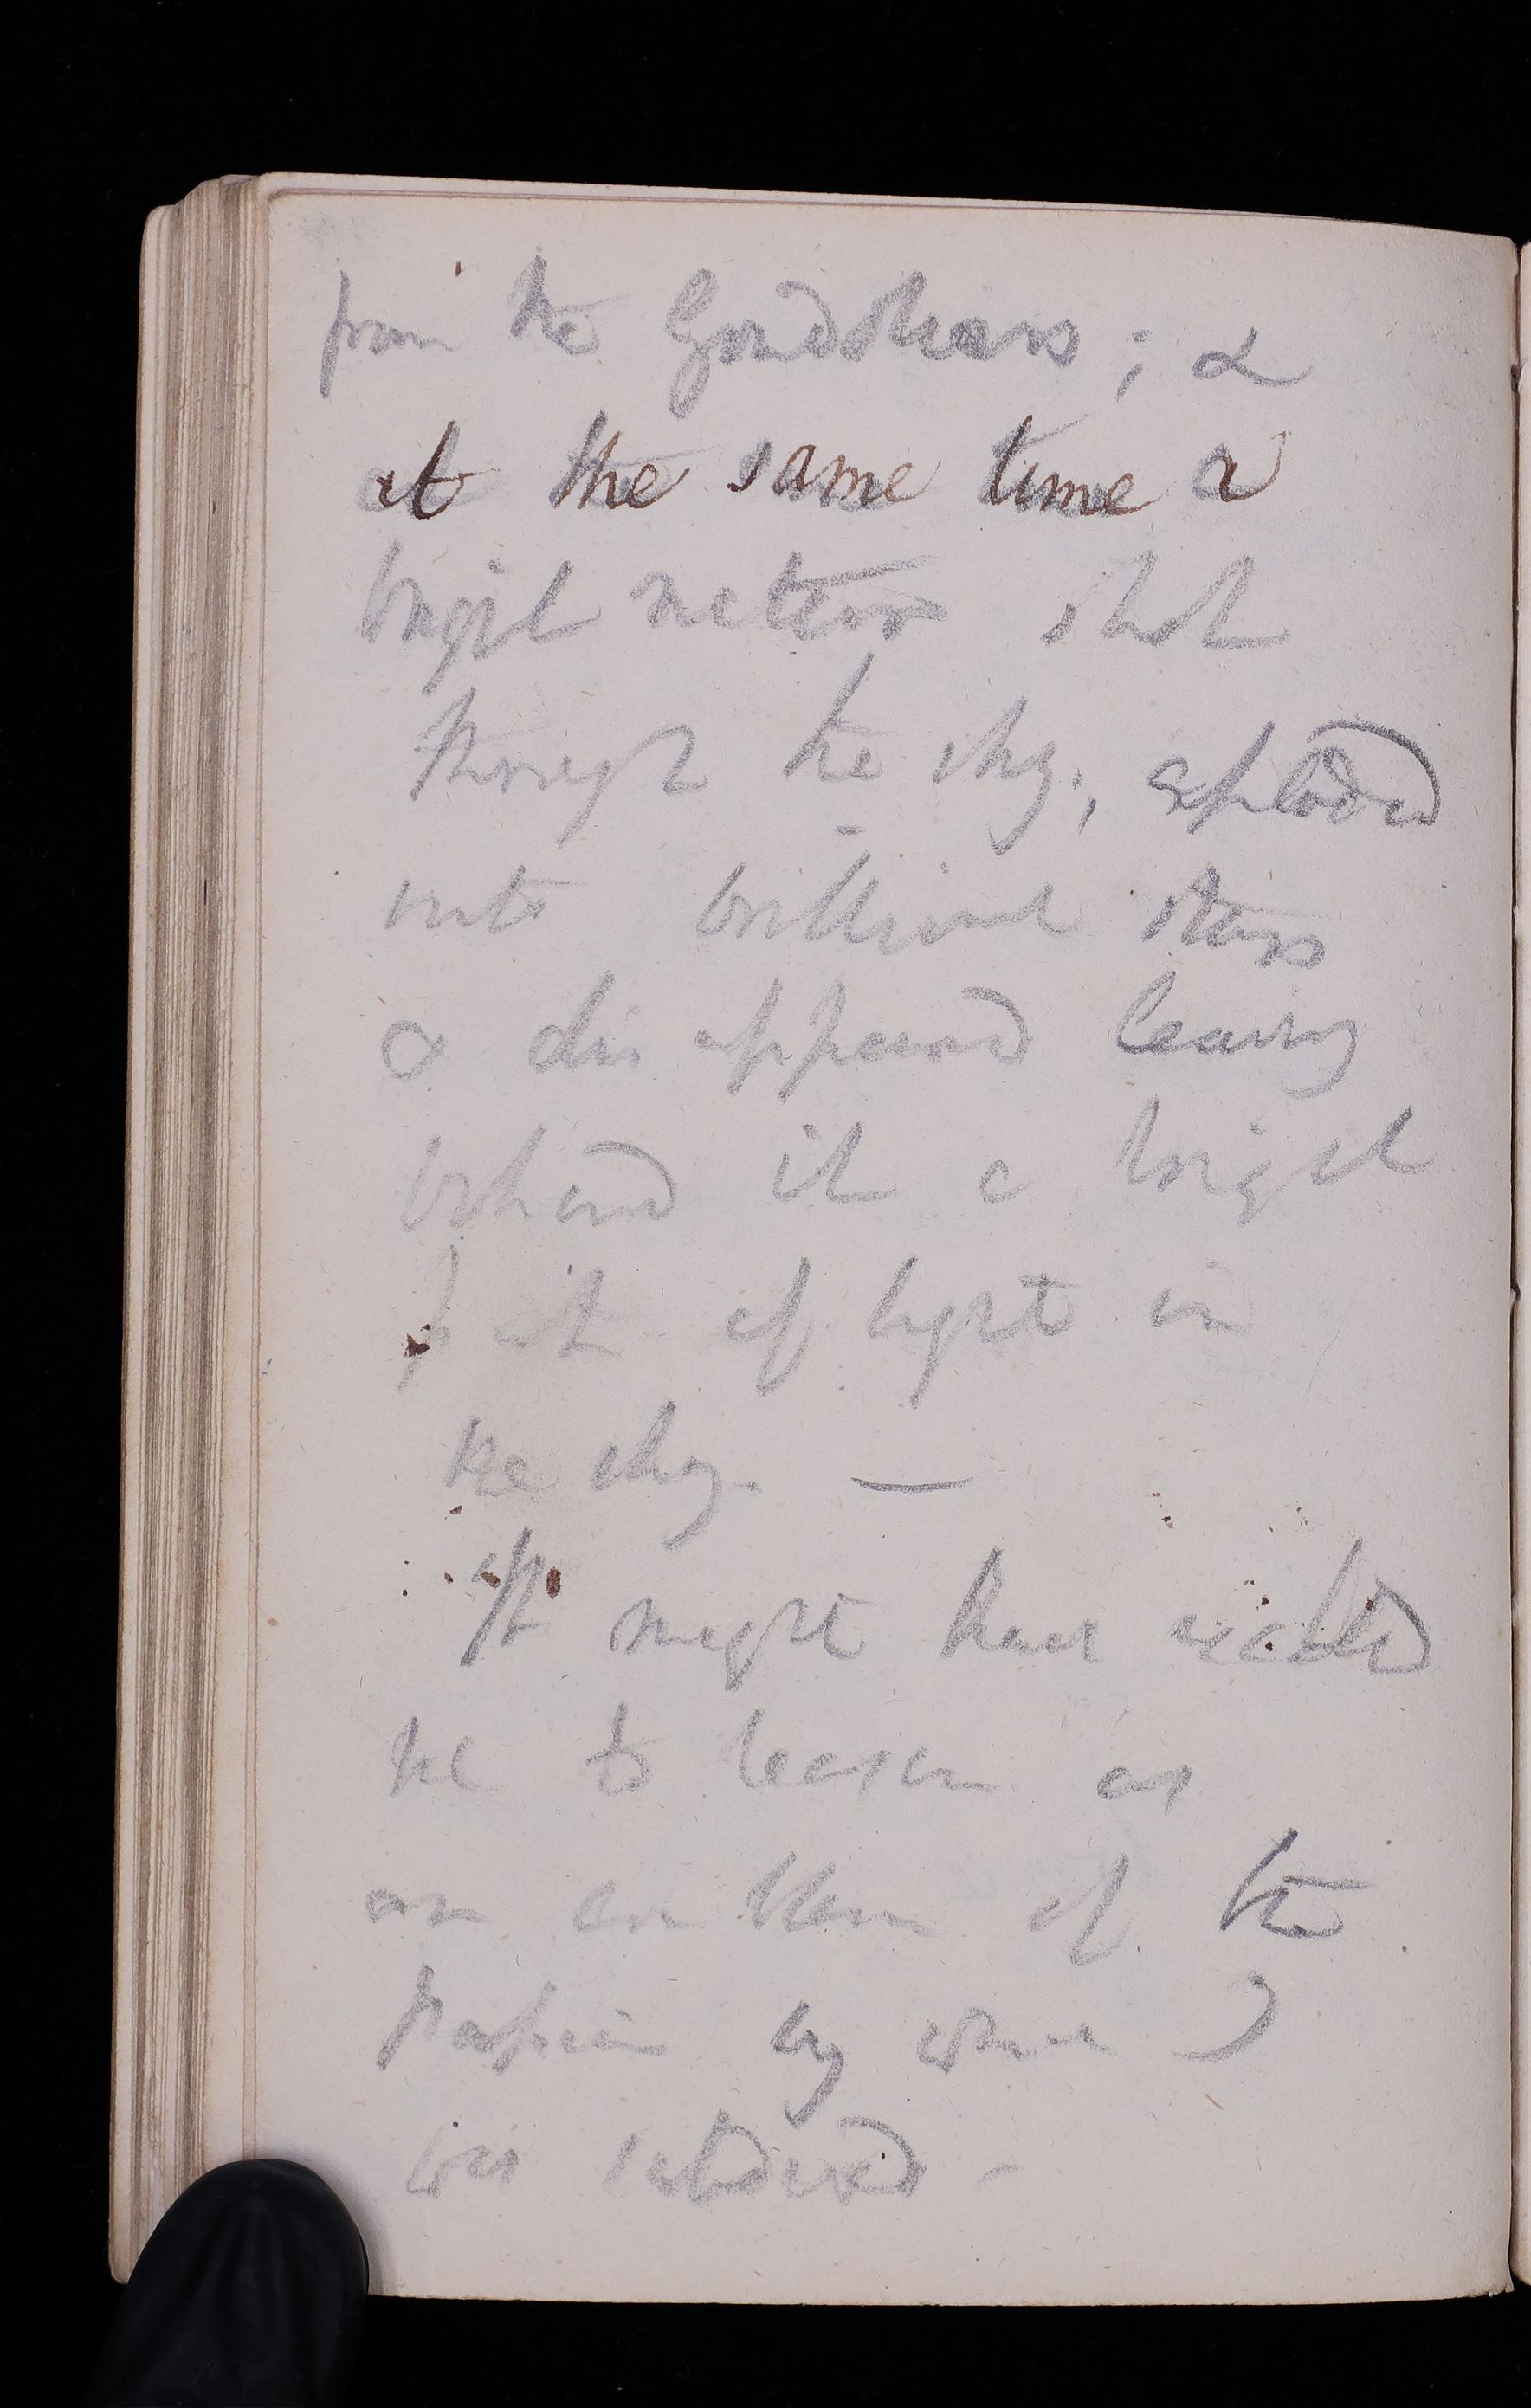 from the Gondoliers; &
at the same time a
bright meteor shot
through the sky, exploded
into brilliant stars
& disappeared leaving
behind it a bright
of light in
the sky. —
It might have
me to as
an emblem of the
passion by which I
was subdued -